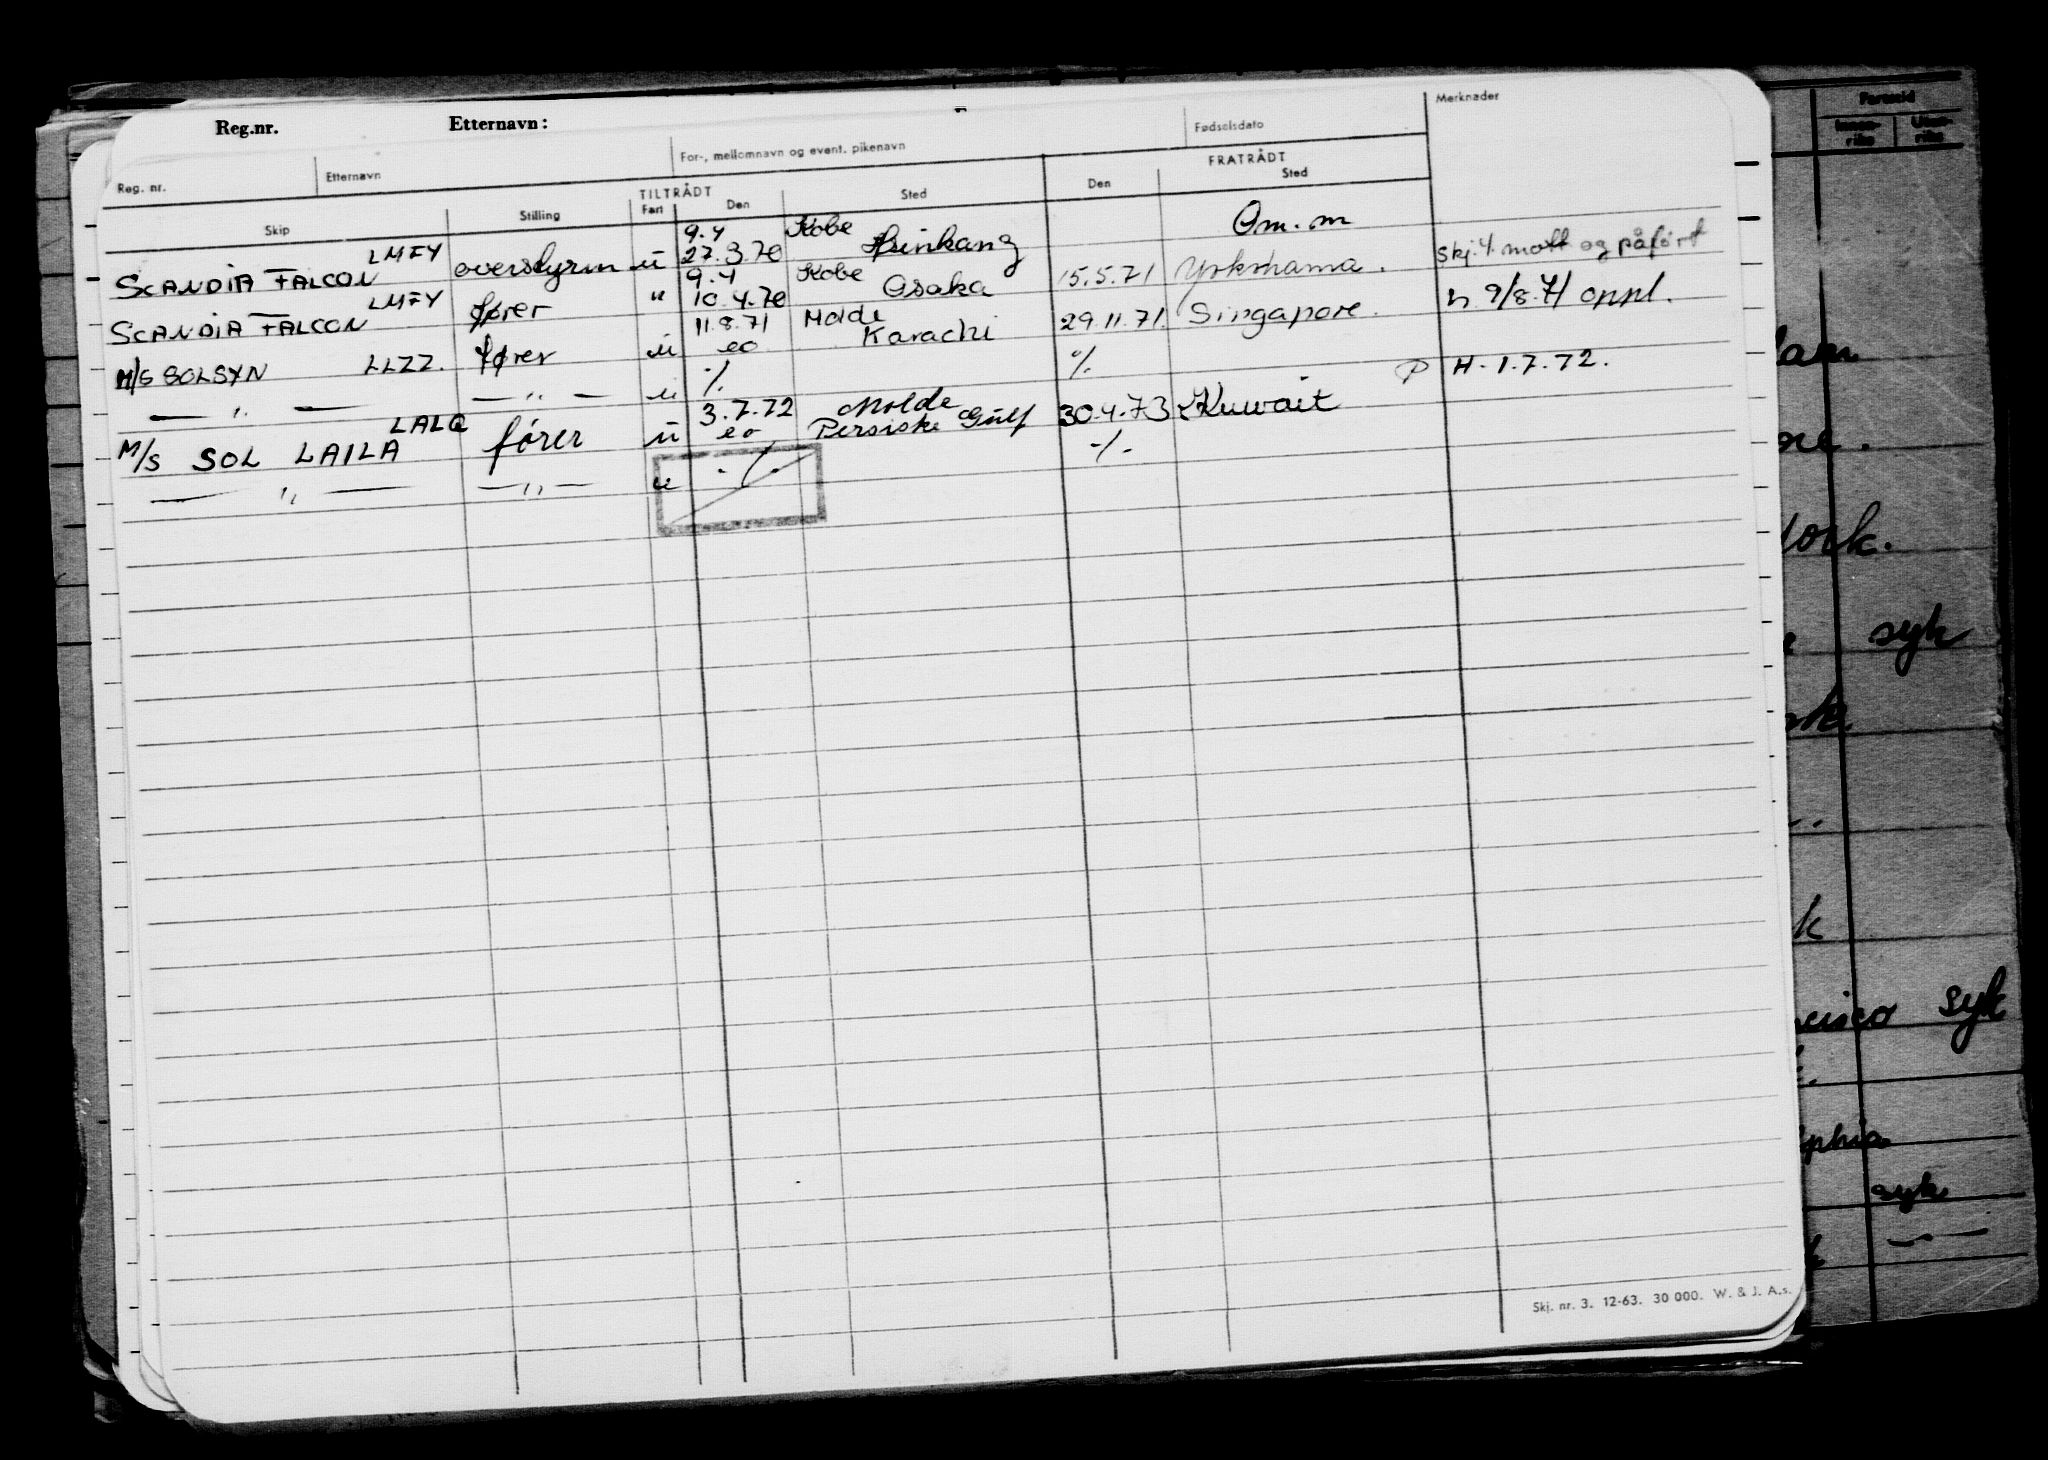 Reg.nr. Etternavn:
Reg. nr. Etternavn For-, mellomnavn og event. pikenavn Fødselsdato Merknader
TILTRÅDT FRATRÅDT
Skip Stilling Fart Den Sted Den Sted
9.4 Kobe
SCANDIA FALCON LMFY overstyrm u 27.3.70 Hsinkang Om. m
9.4 Kobe
SCANDIA FALCON LMFY fører " 10.4.70 Osaka 15.5.71 Yokohama. Skj. 4. mott og påført
11.8.71 Molde
M/S SOLSYN LLZZ. fører u eo Karachi 29.11.71. Singapore. h 9/8.71 oppl.
— " — — " — u ./. ./. P H. 1.7.72.
3.7.72 Molde
M/S SOL LAILA LALQ fører u eo Persiske Gulf 30.4.73 Kuwait
— " — — " — u ./. ./.
Skj. nr. 3. 12-63. 30 000. W. & J. A.s.
Inner-
riks
Uten-
riks
syk
syk
syk